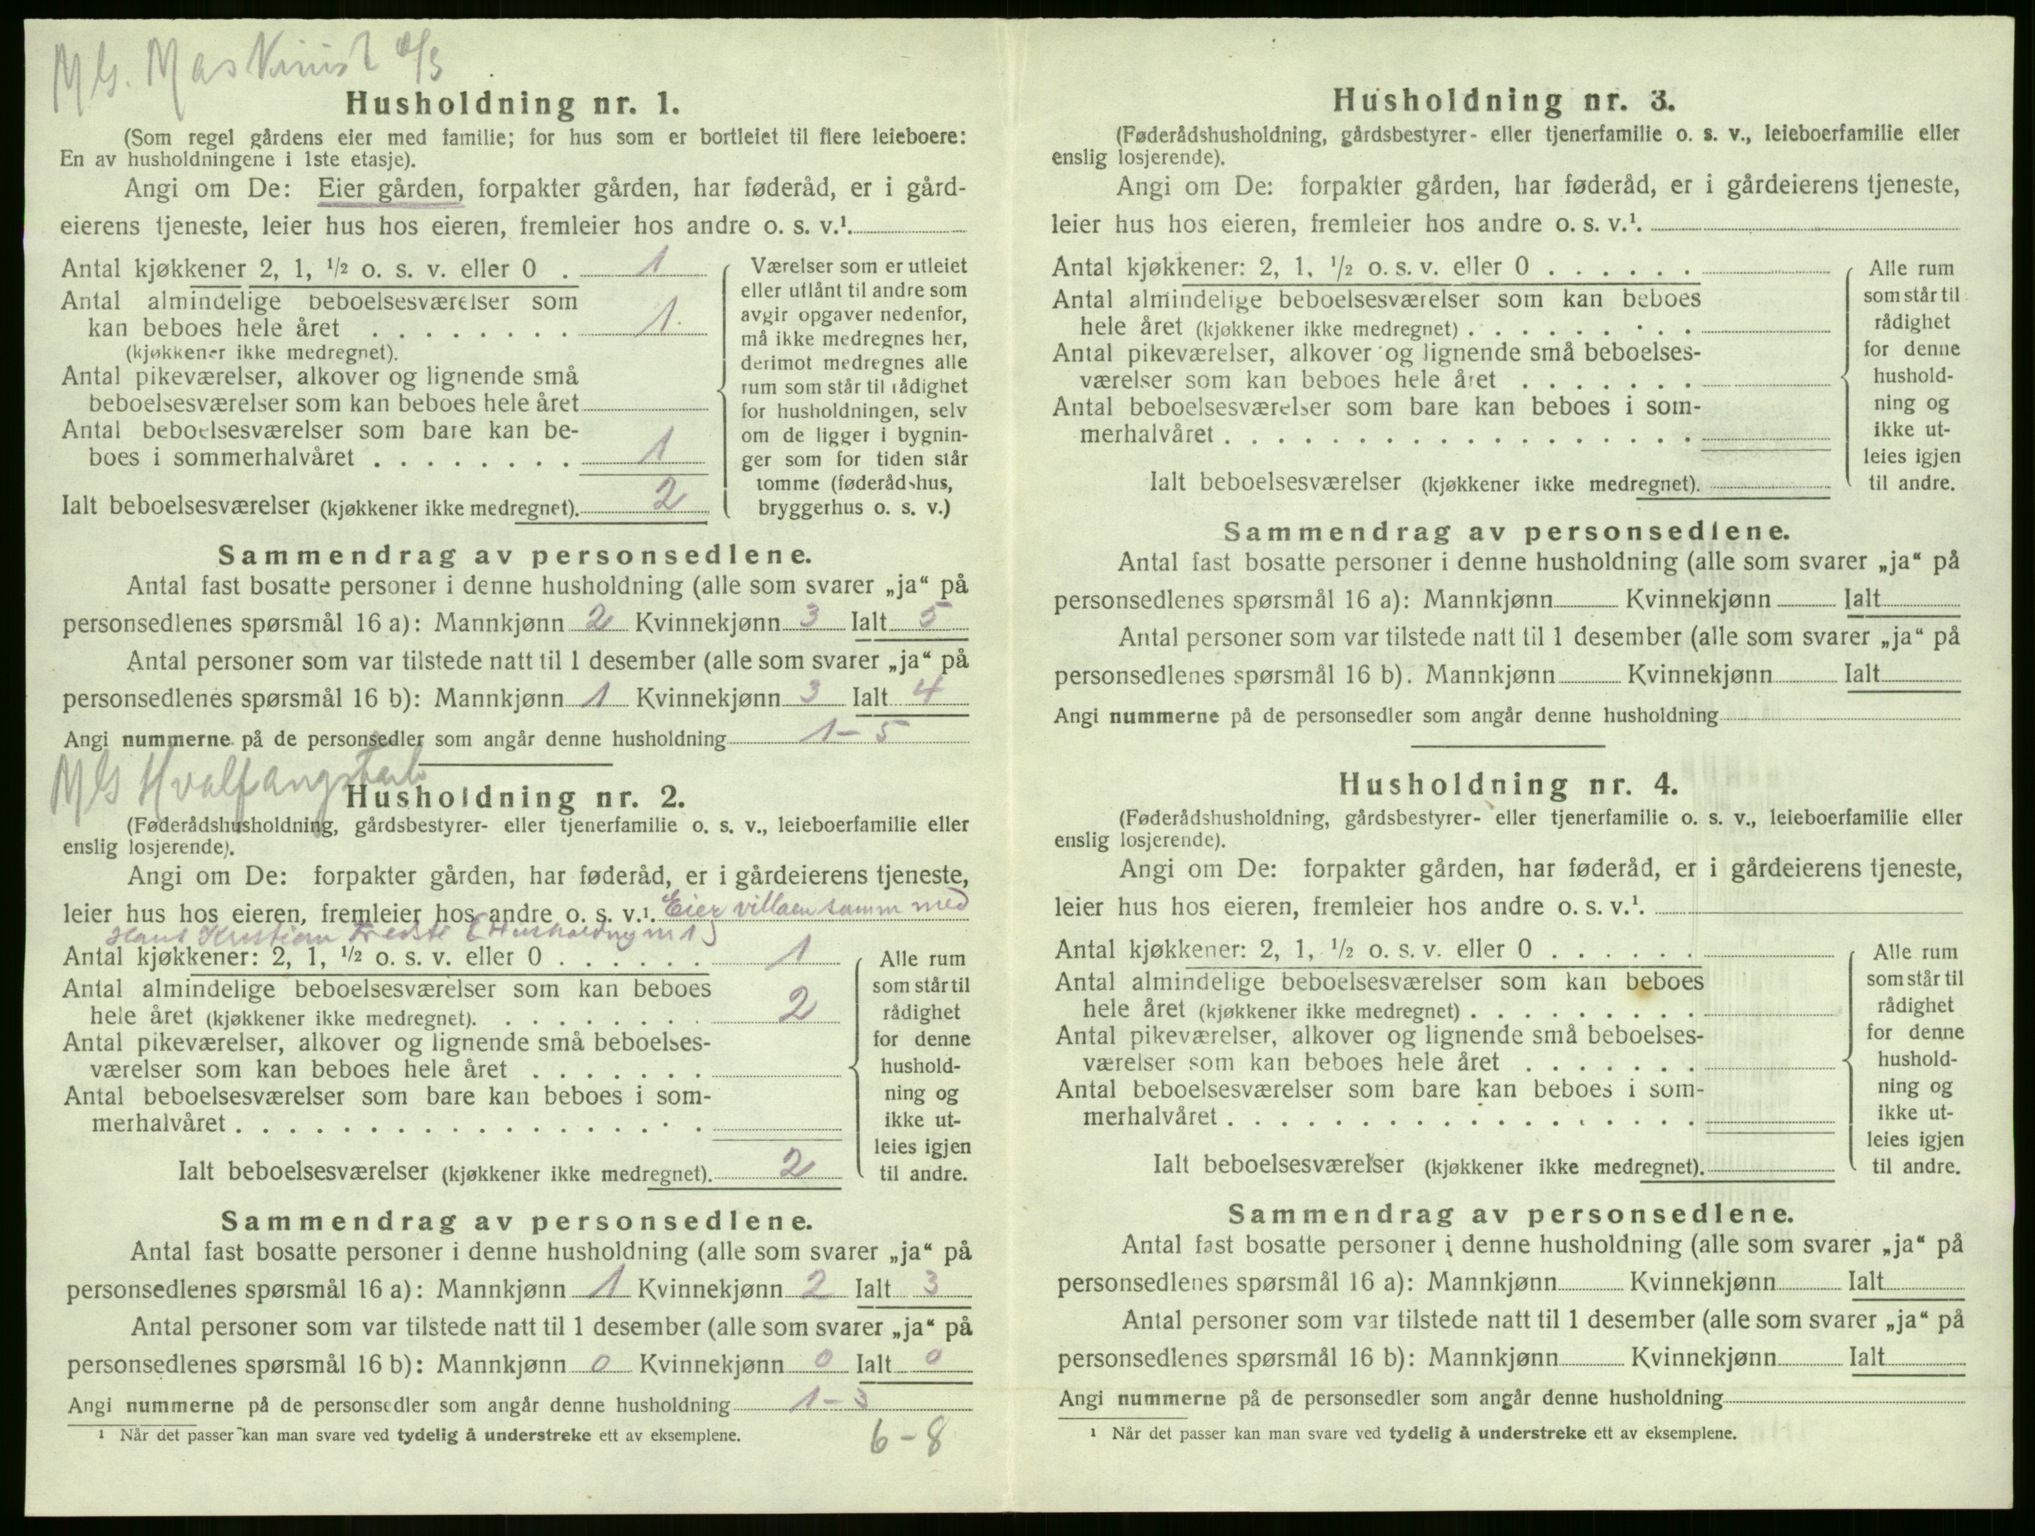 MG. Maskinist d/s
Husholdning nr. 1.
(Som regel gårdens eier med familie; for hus som er bortleiet til flere leieboere:
En av husholdningene i 1ste etasje).
Angi om De: Eier gården, forpakter gården, har føderåd, er i gård-
eierens tjeneste, leier hus hos eieren, fremleier hos andre o. s. v.¹.
Antal kjøkkener 2, 1, ¹/₂ o. s. v. eller 0 . 1
Antal almindelige beboelsesværelser som
kan beboes hele året . . . . . . . . 1
(kjøkkener ikke medregnet).
Antal pikeværelser, alkover og lignende små
beboelsesværelser som kan beboes hele året
Antal beboelsesværelser som bare kan be-
boes i sommerhalvåret . . . . . . . . 1
Ialt beboelsesværelser (kjøkkener ikke medregnet). 2
Værelser som er utleiet
eller utlånt til andre som
avgir opgaver nedenfor,
må ikke medregnes her,
derimot medregnes alle
rum som står til rådighet
for husholdningen, selv
om de ligger i bygnin-
ger som for tiden står
tomme (føderådshus,
bryggerhus o. s. v.)
Sammendrag av personsedlene.
Antal fast bosatte personer i denne husholdning (alle som svarer „ja“ på
personsedlenes spørsmål 16 a): Mannkjønn 2 Kvinnekjønn 3 Ialt 5
Antal personer som var tilstede natt til 1 desember (alle som svarer „ja“ på
personsedlenes spørsmål 16 b): Mannkjønn 1 Kvinnekjønn 3 Ialt 4
Angi nummerne på de personsedler som angår denne husholdning 1-5
MG Hvalfangstarb
Husholdning nr. 2.
(Føderådshusholdning, gårdsbestyrer- eller tjenerfamilie o. s. v., leieboerfamilie eller
enslig losjerende).
Angi om De: forpakter gården, har føderåd, er i gårdeierens tjeneste,
leier hus hos eieren, fremleier hos andre o. s. v.¹. Eier villaen samm med
Hans Kristian (Husholdning nr 1)
Antal kjøkkener: 2, 1, ¹/₂ o. s. v. eller 0 . . . . . . 1
Antal almindelige beboelsesværelser som kan beboes
hele året (kjøkkener ikke medregnet). . . . . . . . . 2
Antal pikeværelser, alkover og lignende små beboelses-
værelser som kan beboes hele året . . . . . . .
Antal beboelsesværelser som bare kan beboes i som-
merhalvåret . . . . . . . . . . . . . . . . .
Ialt beboelsesværelser (kjøkkener ikke medregnet). 2
Alle rum
som står til
rådighet
for denne
hushold-
ning og
ikke ut-
leies igjen
til andre.
Sammendrag av personsedlene.
Antal fast bosatte personer i denne husholdning (alle som svarer „ja“ på
personsedlenes spørsmål 16 a): Mannkjønn 1 Kvinnekjønn 2 Ialt 3
Antal personer som var tilstede natt til 1 desember (alle som svarer „ja“ på
personsedlenes spørsmål 16 b): Mannkjønn 0 Kvinnekjønn 0 Ialt 0
Angi nummerne på de personsedler som angår denne husholdning 1-3
¹ Når det passer kan man svare ved tydelig å understreke ett av eksemplene.
6-8
Husholdning nr. 3.
(Føderådshusholdning, gårdsbestyrer- eller tjenerfamilie o. s. v., leieboerfamilie eller
enslig losjerende).
Angi om De: forpakter gården, har føderåd, er i gårdeierens tjeneste,
leier hus hos eieren, fremleier hos andre o. s. v.¹.
Antal kjøkkener: 2, 1, ¹/₂ o. s. v. eller 0 . . . . . .
Antal almindelige beboelsesværelser som kan beboes
hele året (kjøkkener ikke medregnet) . . . . . . . . .
Antal pikeværelser, alkover og lignende små beboelses-
værelser som kan beboes hele året . . . . . . .
Antal beboelsesværelser som bare kan beboes i som-
merhalvåret . . . . . . . . . . . . . . . . .
Ialt beboelsesværelser (kjøkkener ikke medregnet).
Alle rum
som står til
rådighet
for denne
hushold-
ning og
ikke ut-
leies igjen
til andre.
Sammendrag av personsedlene.
Antal fast bosatte personer i denne husholdning (alle som svarer „ja“ på
personsedlenes spørsmål 16 a): Mannkjønn Kvinnekjønn Ialt
Antal personer som var tilstede natt til 1 desember (alle som svarer „ja“ på
personsedlenes spørsmål 16 b). Mannkjønn Kvinnekjønn Ialt
Angi nummerne på de personsedler som angår denne husholdning
Husholdning nr. 4.
(Føderådshusholdning, gårdsbestyrer- eller tjenerfamilie o. s. v., leieboerfamilie eller
enslig losjerende).
Angi om De: forpakter gården, har føderåd, er i gårdeierens tjeneste,
leier hus hos eieren, fremleier hos andre o. s. v.¹.
Antal kjøkkener: 2, 1, ¹/₂ o. s. v. eller 0 . . . . . .
Antal almindelige beboelsesværelser som kan beboes
hele året (kjøkkener ikke medregnet) . . . . . . . . .
Antal pikeværelser, alkover og lignende små beboelses-
værelser som kan beboes hele året . . . . . . .
Antal beboelsesværelser som bare kan beboes i som-
merhalvåret . . . . . . . . . . . . . . . . .
Ialt beboelsesværelser (kjøkkener ikke medregnet).
Alle rum
som står til
rådighet
for denne
hushold-
ning og
ikke ut-
leies igjen
til andre.
Sammendrag av personsedlene.
Antal fast bosatte personer i denne husholdning (alle som svarer „ja“ på
personsedlenes spørsmål 16 a): Mannkjønn Kvinnekjønn Ialt
Antal personer som var tilstede natt til 1 desember (alle som svarer „ja“ på
personsedlenes spørsmål 16 b): Mannkjønn Kvinnekjønn Ialt
Angi nummerne på de personsedler som angår denne husholdning
¹ Når det passer kan man svare ved tydelig å understreke ett av eksemplene.